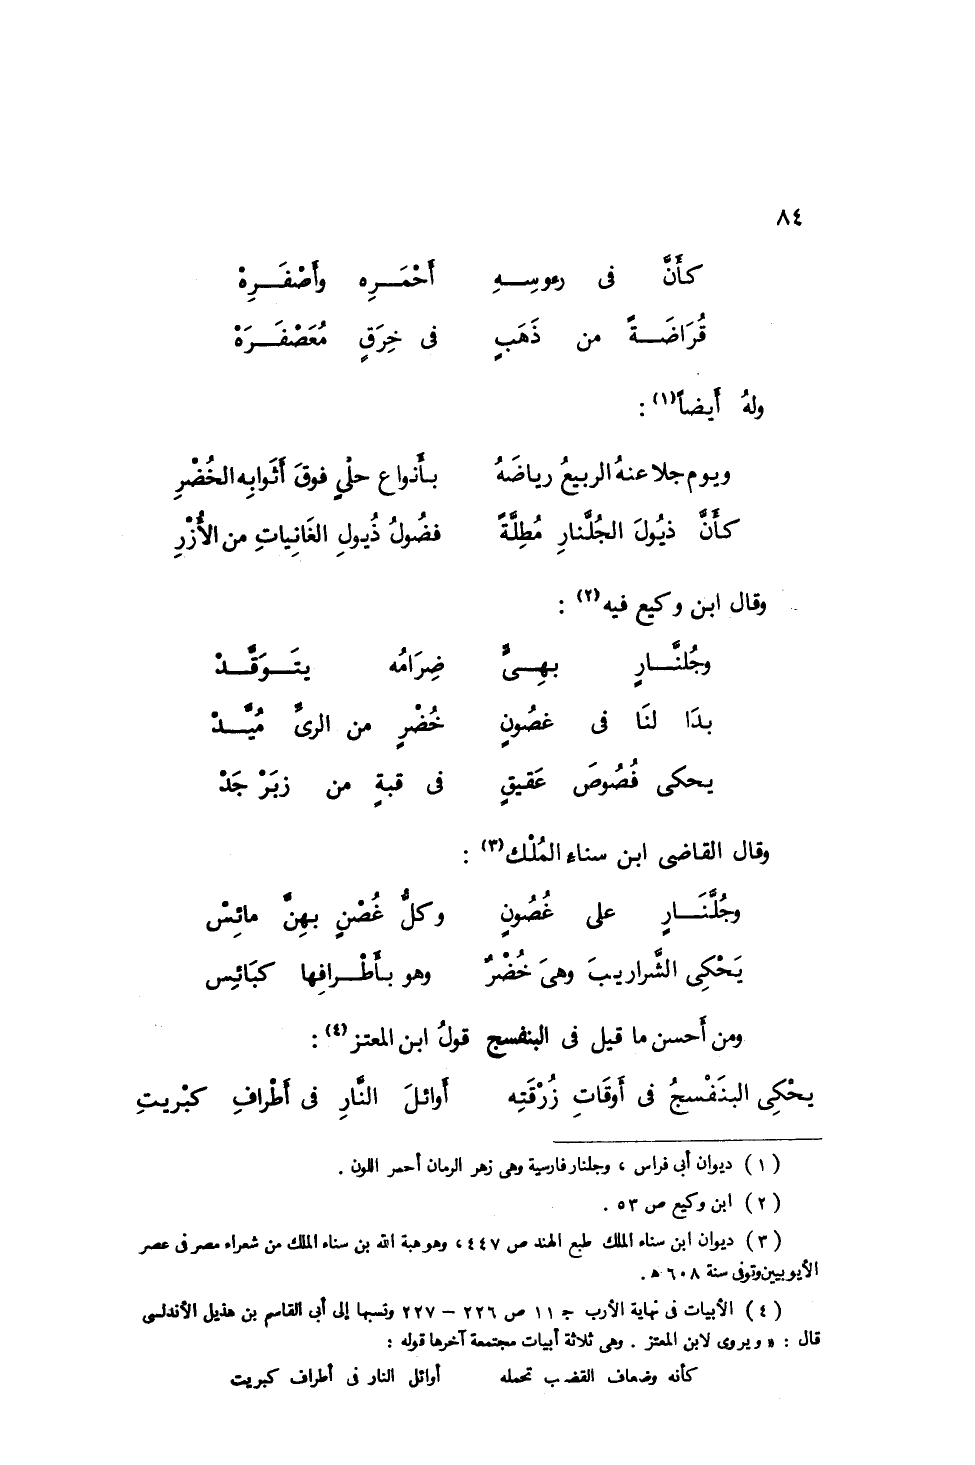 ٨٤
كأَنَّ فى رءوسِـــهِ أَحْمَـــرِه وأَصْفَـــرِهْ
قُرَاضَـــةً من ذَهَبٍ فى خِرَقٍ مُعَصْفَـــرَهْ
ولهُ أيضاً(١) :
ويوم جلا عنهُ الربيعُ رياضَهُ بأَنواع حلْيٍ فوقَ أَثَوابِه الخُضْرِ
كأَنَّ ذيُولَ الجُلَّنارِ مُطِلَّةً فضُولُ ذُيولِ الغَانِياتِ من الأُزْرِ
وقال ابن وكيع فيه(٢) :
وجُلنَّـــارٍ بهِـــىٍّ ضِرَامُه يتَـــوَقَّـــدْ
بدَا لنَا فى غصُونٍ خُضْرٍ من الرىِّ مُيَّـــدْ
يحكى فُصُوصَ عَقيقٍ فى قبةٍ من زبَرْجَدْ
وقال القاضى ابن سناء المُلْك(٣) :
وجُلَّنَـــارٍ على غُصُونٍ وكلُّ غُصْنٍ بهِنَّ مائِسْ
يَحْكِى الشَّراريبَ وهىَ خُضْرٌ وهو بأَطْـــرافِها كبَائِس
ومن أَحسن ما قيل فى البنفسج قولُ ابن المعتز(٤) :
يحْكِى البنَفْسجُ فى أَوقَاتِ زُرْقَتِه أَوائلَ النَّارِ فى أَطْرافِ كبْريتِ
(١) ديوان أبى فراس ، وجلنار فارسية وهى زهر الرمان أحمر اللون .
(٢) ابن وكيع ص ٥٣ .
(٣) ديوان ابن سناء الملك طبع الهند ص ٤٤٧ ، وهو هبة الله بن سناء الملك من شعراء مصر فى عصر
الأيوبيين وتوفى سنة ٦٠٨ هـ .
(٤) الأبيات فى نهاية الأرب جـ ١١ ص ٢٢٦ – ٢٢٧ ونسبها إلى أبى القاسم بن هذيل الأندلسى
قال : « ويروى لابن المعتز . وهى ثلاثة أبيات مجتمعة آخرها قوله :
كأنه وضعاف القضب تحمله أوائل النار فى أطراف كبريت